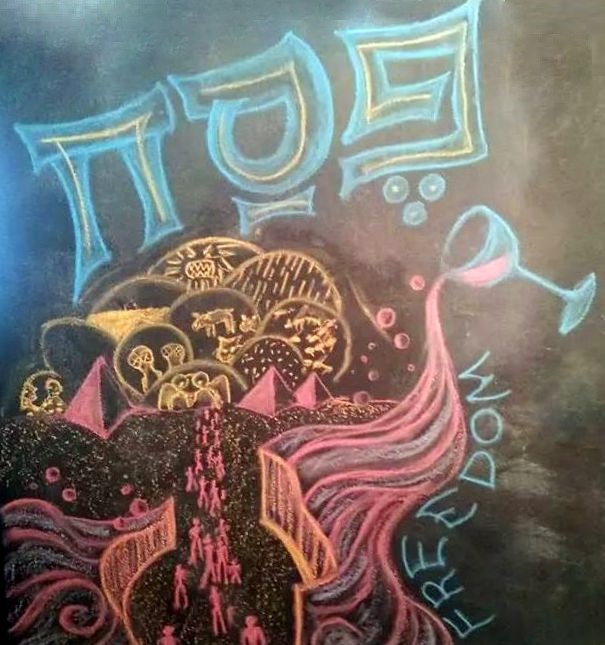 פֶסַח
FREEDOM